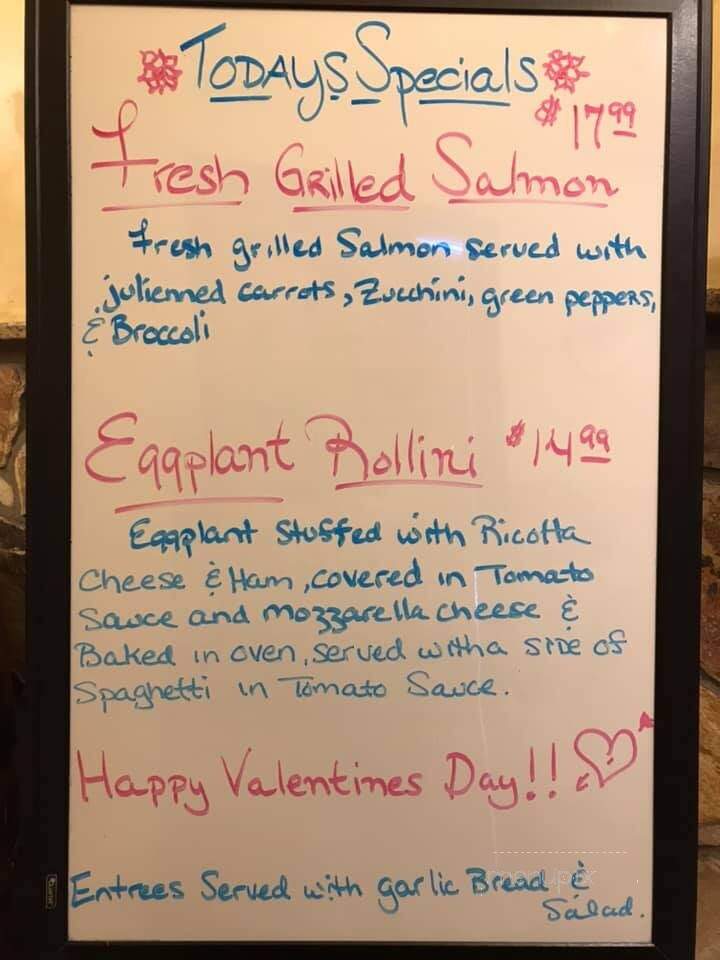 TODAYS Specials
$17.99
Fresh Grilled Salmon
Fresh grilled Salmon served with
julienned carrots, Zucchini, green peppers,
& Broccoli
Eggplant Rollini $14.99
Eggplant stuffed with Ricotta
Cheese & Ham, covered in Tomato
Sauce and mozzarella cheese &
Baked in oven, served with a side of
Spaghetti in Tomato Sauce.
Happy Valentines Day!!
Entrees Served with garlic Bread &
Salad.